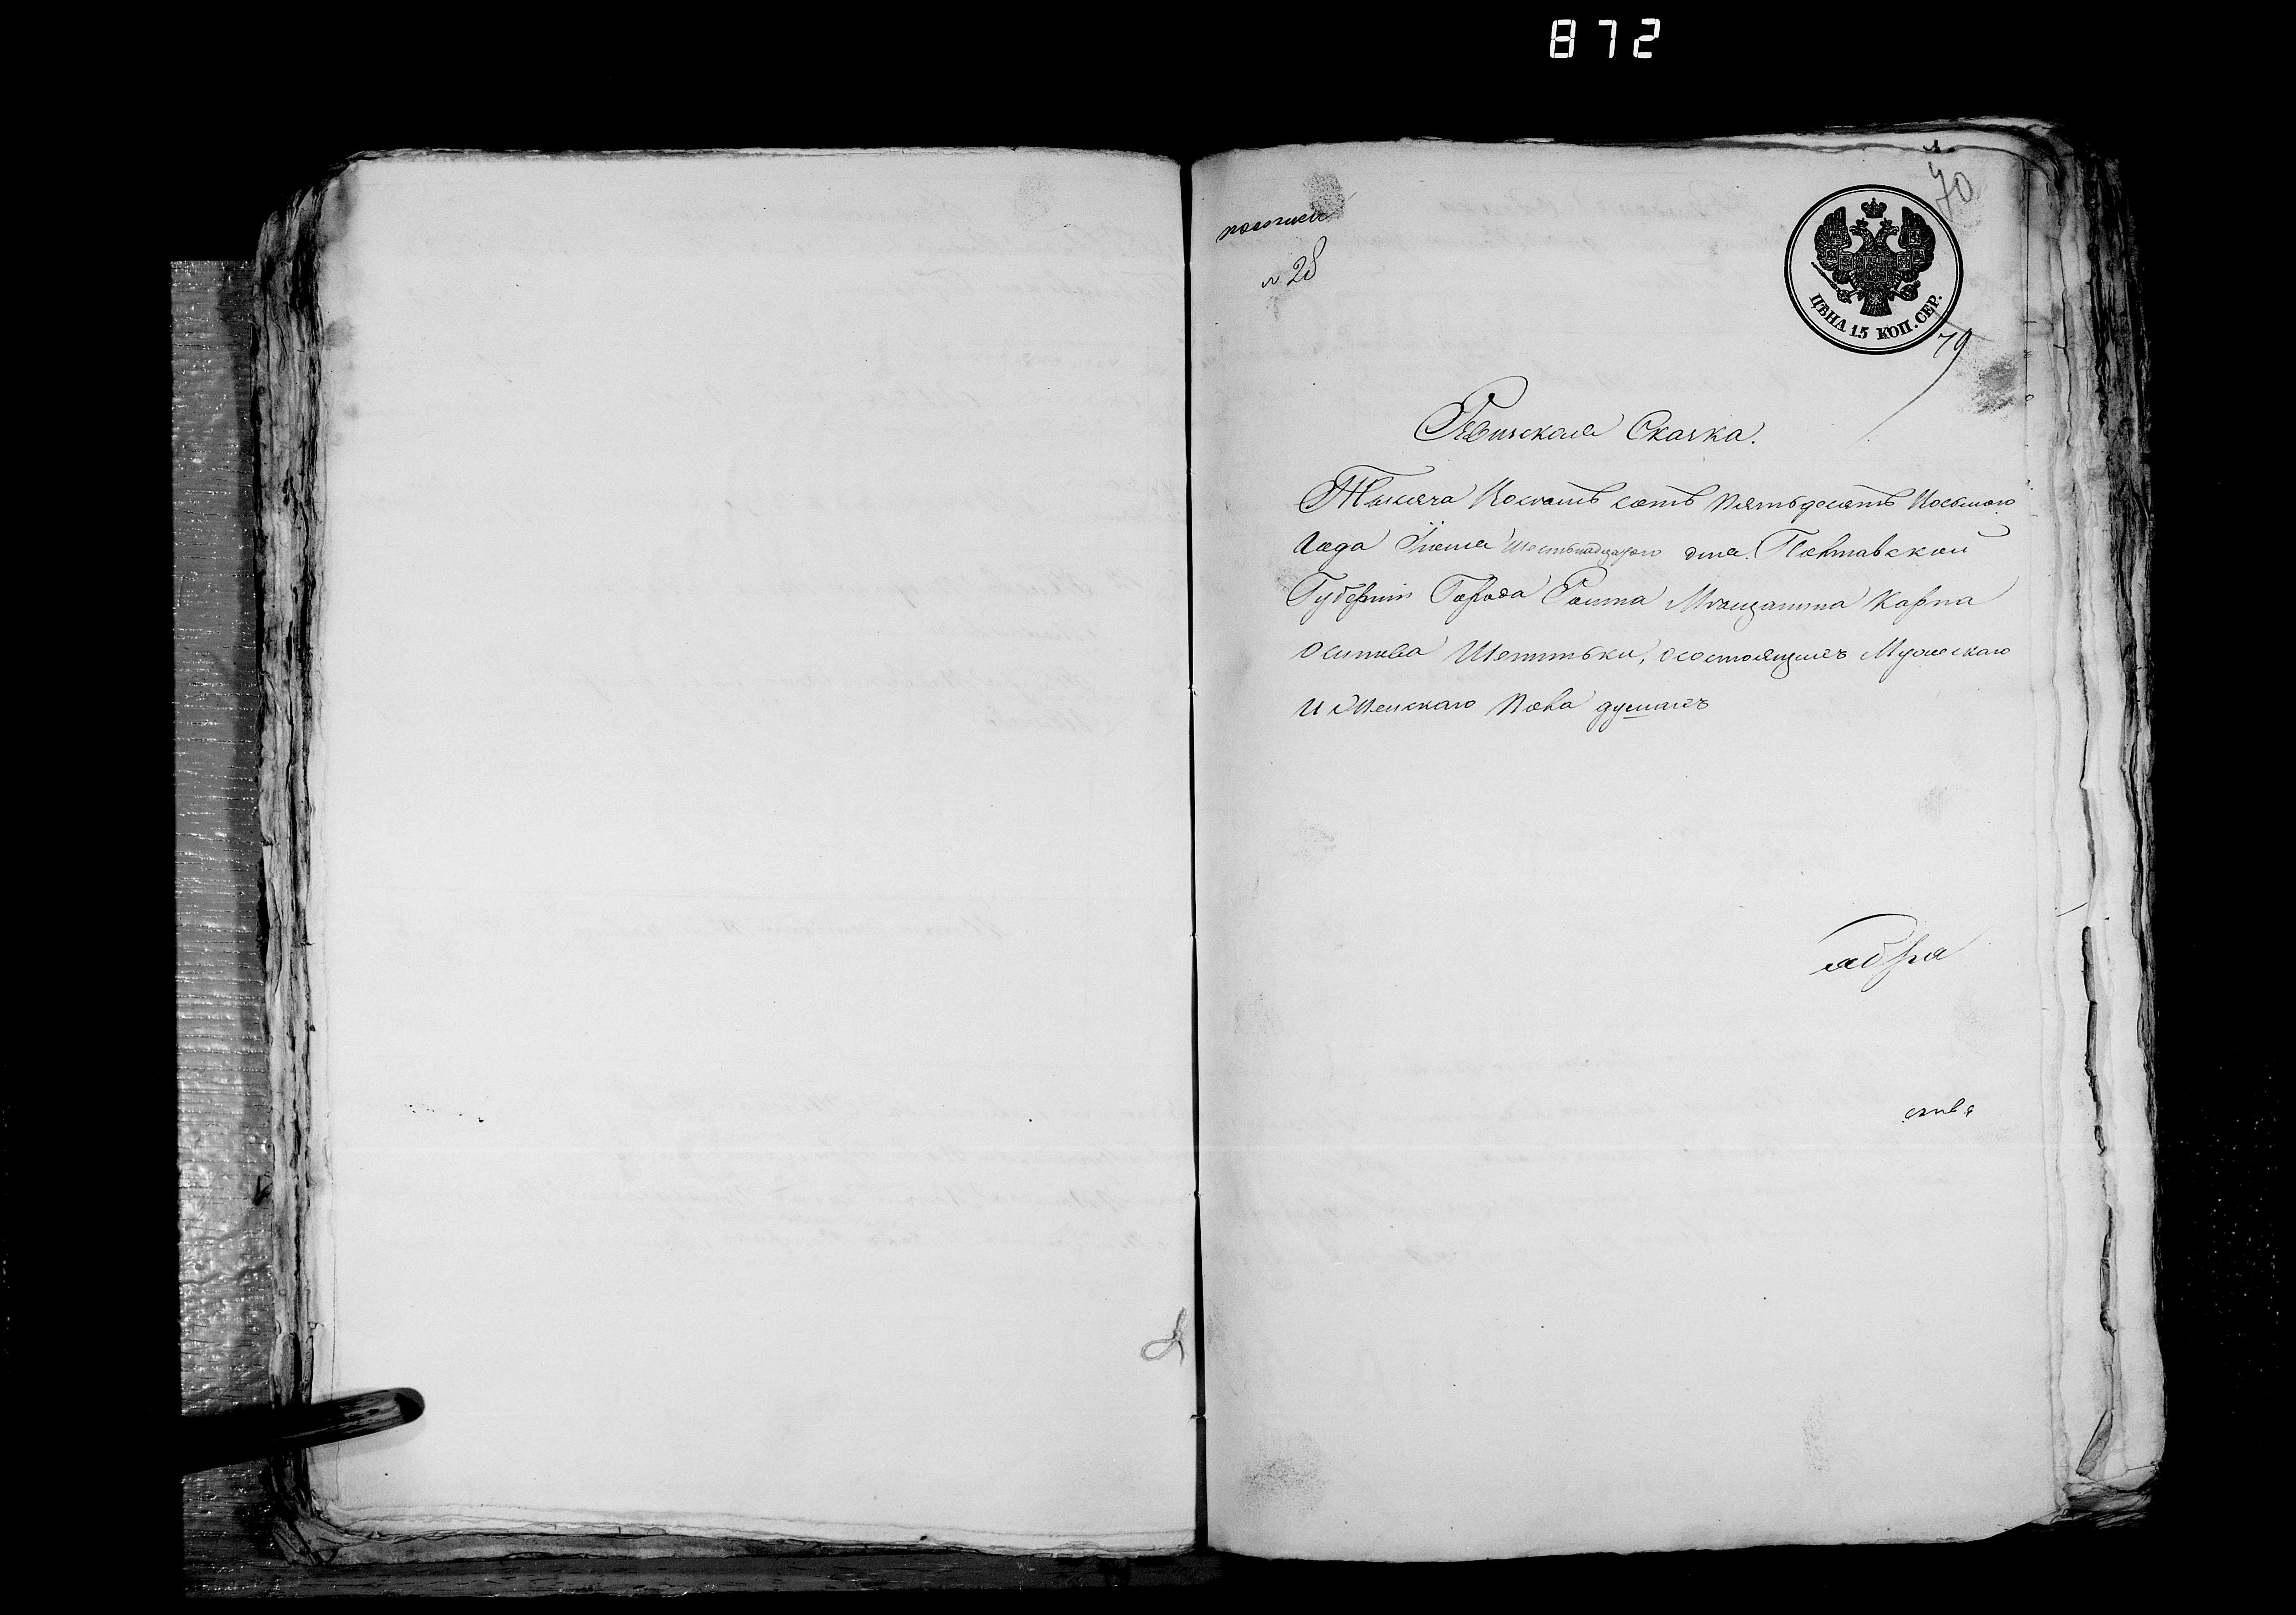 872
70
№ 28
ЦѢНА 15 КОП. СЕР.
79
Ревизская Сказка.
Тысяча Восемь сотъ пятьдесятъ Восьмого
Года Іюня шестьнадцатого дня. Полтавской
Губерніи Города Ромна Мѣщанина Карпа
Осипова Шепитьки, о состоящихъ Мужескаго
И Женскаго Пола душахъ